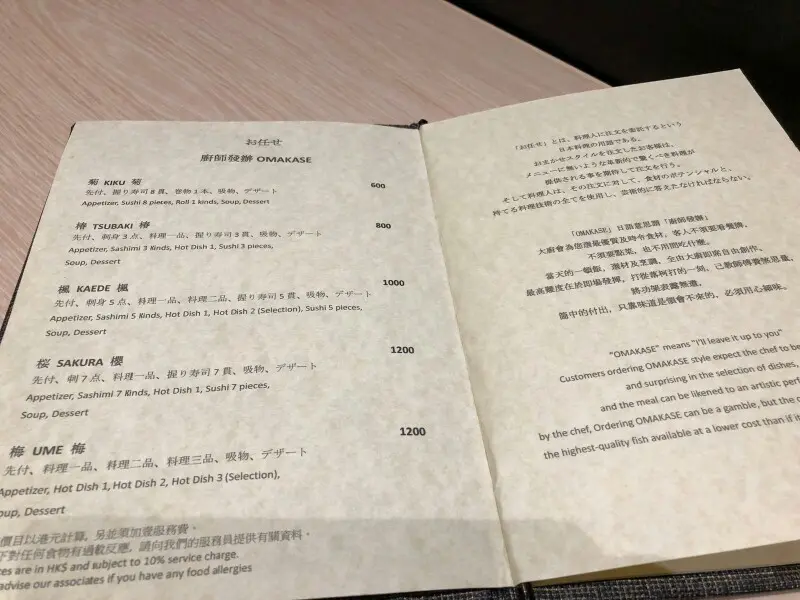 お任せ
廚師發辦 OMAKASE
菊 KIKU 菊
600
先付、握り寿司8貫、巻物1本、吸物、デザート
Appetizer, Sushi 8 pieces, Roll 1 kinds, Soup, Dessert
椿 TSUBAKI 椿
800
先付、刺身3点、料理一品、握り寿司3貫、吸物、デザート
Appetizer, Sashimi 3 Kinds, Hot Dish 1, Sushi 3 pieces,
Soup, Dessert
楓 KAEDE 楓
1000
先付、刺身5点、料理一品、料理二品、握り寿司5貫、吸物、デザート
Appetizer, Sashimi 5 Kinds, Hot Dish 1, Hot Dish 2 (Selection), Sushi 5 pieces,
Soup, Dessert
桜 SAKURA 櫻
1200
先付、刺7点、料理一品、握り寿司7貫、吸物、デザート
Appetizer, Sashimi 7 Kinds, Hot Dish 1, Sushi 7 pieces,
Soup, Dessert
梅 UME 梅
1200
先付、料理一品、料理二品、料理三品、吸物、デザート
Appetizer, Hot Dish 1, Hot Dish 2, Hot Dish 3 (Selection),
oup, Dessert
價目以港元計算，另並須加壹服務費。
下對任何食物有過敏反應，請向我們的服務員提供有關資料。
ces are in HK$ and subject to 10% service charge.
advise our associates if you have any food allergies
「お任せ」とは、料理人に注文を委託するという
日本料理の用語である。
おまかせスタイルを注文したお客様は、
メニューに無いような革新的で驚くべき料理が
提供される事を期待して注文を行う。
そして料理人は、その注文に対して、食材のポテンシャルと、
持てる料理技術の全てを使用し、芸術的に答えなければならない。
「OMAKASE」日語意思謂「廚師發辦」
大廚會為您選最優質及時令食材，客人不須要看餐牌，
不須要點菜，也不用問吃什麼。
當天的一頓飯，選材及烹調，全由大廚即席自由創作。
最高難度在於即場發揮，打從落柯打的一刻，已教師傅費煞思量，
將功架表露無遺，
箇中的付出，只靠味道是領會不來的，必須用心細味。
"OMAKASE" means "I'll leave it up to you"
Customers ordering OMAKASE style expect the chef to be
and surprising in the selection of dishes,
and the meal can be likened to an artistic perf
by the chef, Ordering OMAKASE can be a gamble, but the c
the highest-quality fish available at a lower cost than if it